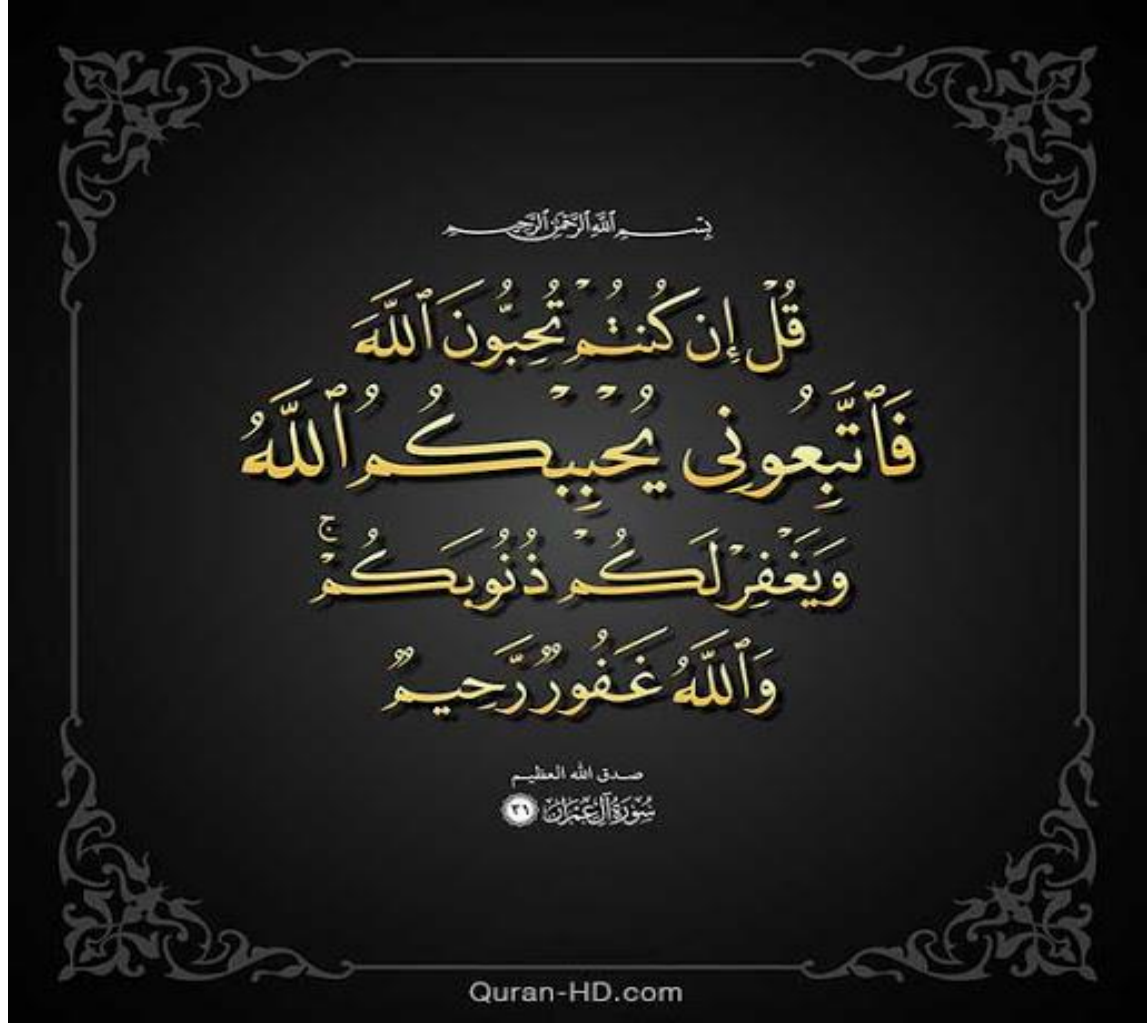 بِسْمِ ٱللَّهِ ٱلرَّحْمَٰنِ ٱلرَّحِيمِ
قُلْ إِن كُنتُمْ تُحِبُّونَ ٱللَّهَ
فَٱتَّبِعُونِى يُحْبِبْكُمُ ٱللَّهُ
وَيَغْفِرْ لَكُمْ ذُنُوبَكُمْ ۚ
وَٱللَّهُ غَفُورٌ رَّحِيمٌ
صدق الله العظيم
سُورَةُ آلِ عِمْرَانَ ٣١
Quran-HD.com